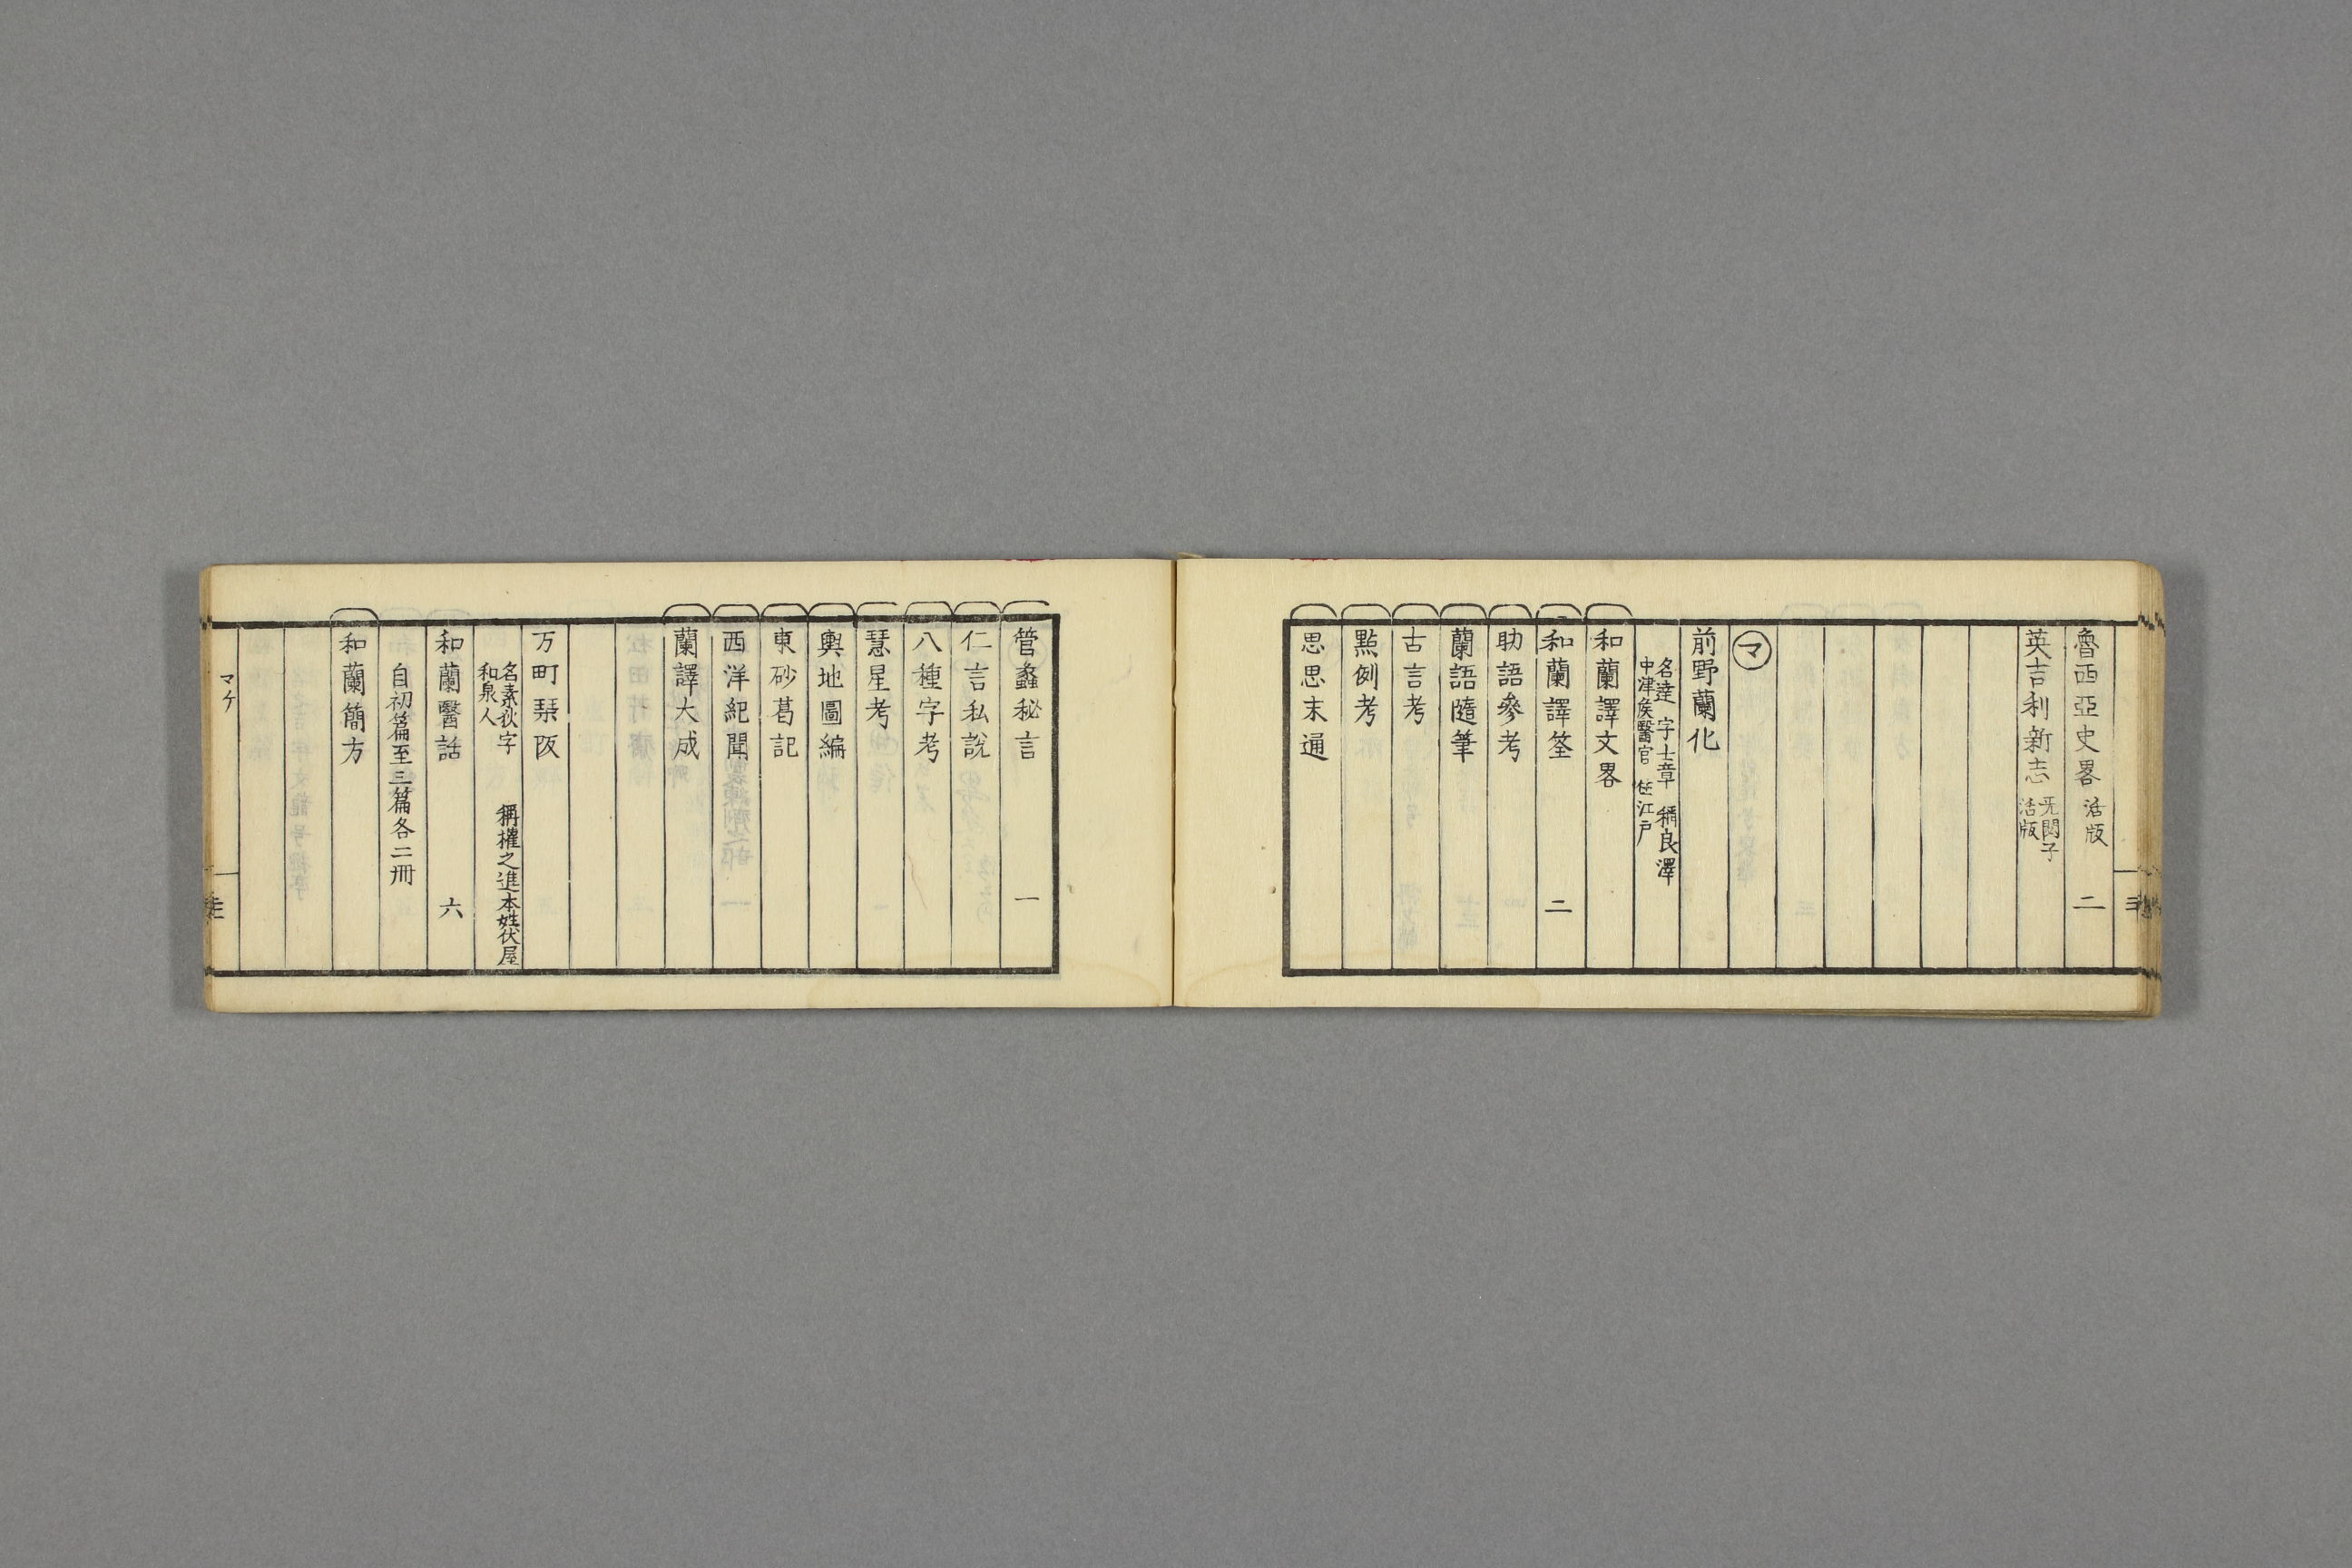 魯西亞史畧 活版 二
英吉利新志 旡悶子 活版
マ
前野蘭化
名達 字士章 稱良澤
中津矦醫官 住江戸
和蘭譯文畧
和蘭譯筌 二
助語參考
蘭語隨筆
古言考
點例考
思思未通
管蠡秘言 一
仁言私說
八種字考
彗星考
輿地圖編
東砂葛記
西洋紀聞
蘭譯大成
万町琹阪
名素狄字 稱權之進本姓伏屋
和泉人
和蘭醫話 六
自初篇至三篇各二冊
和蘭簡方
マケ